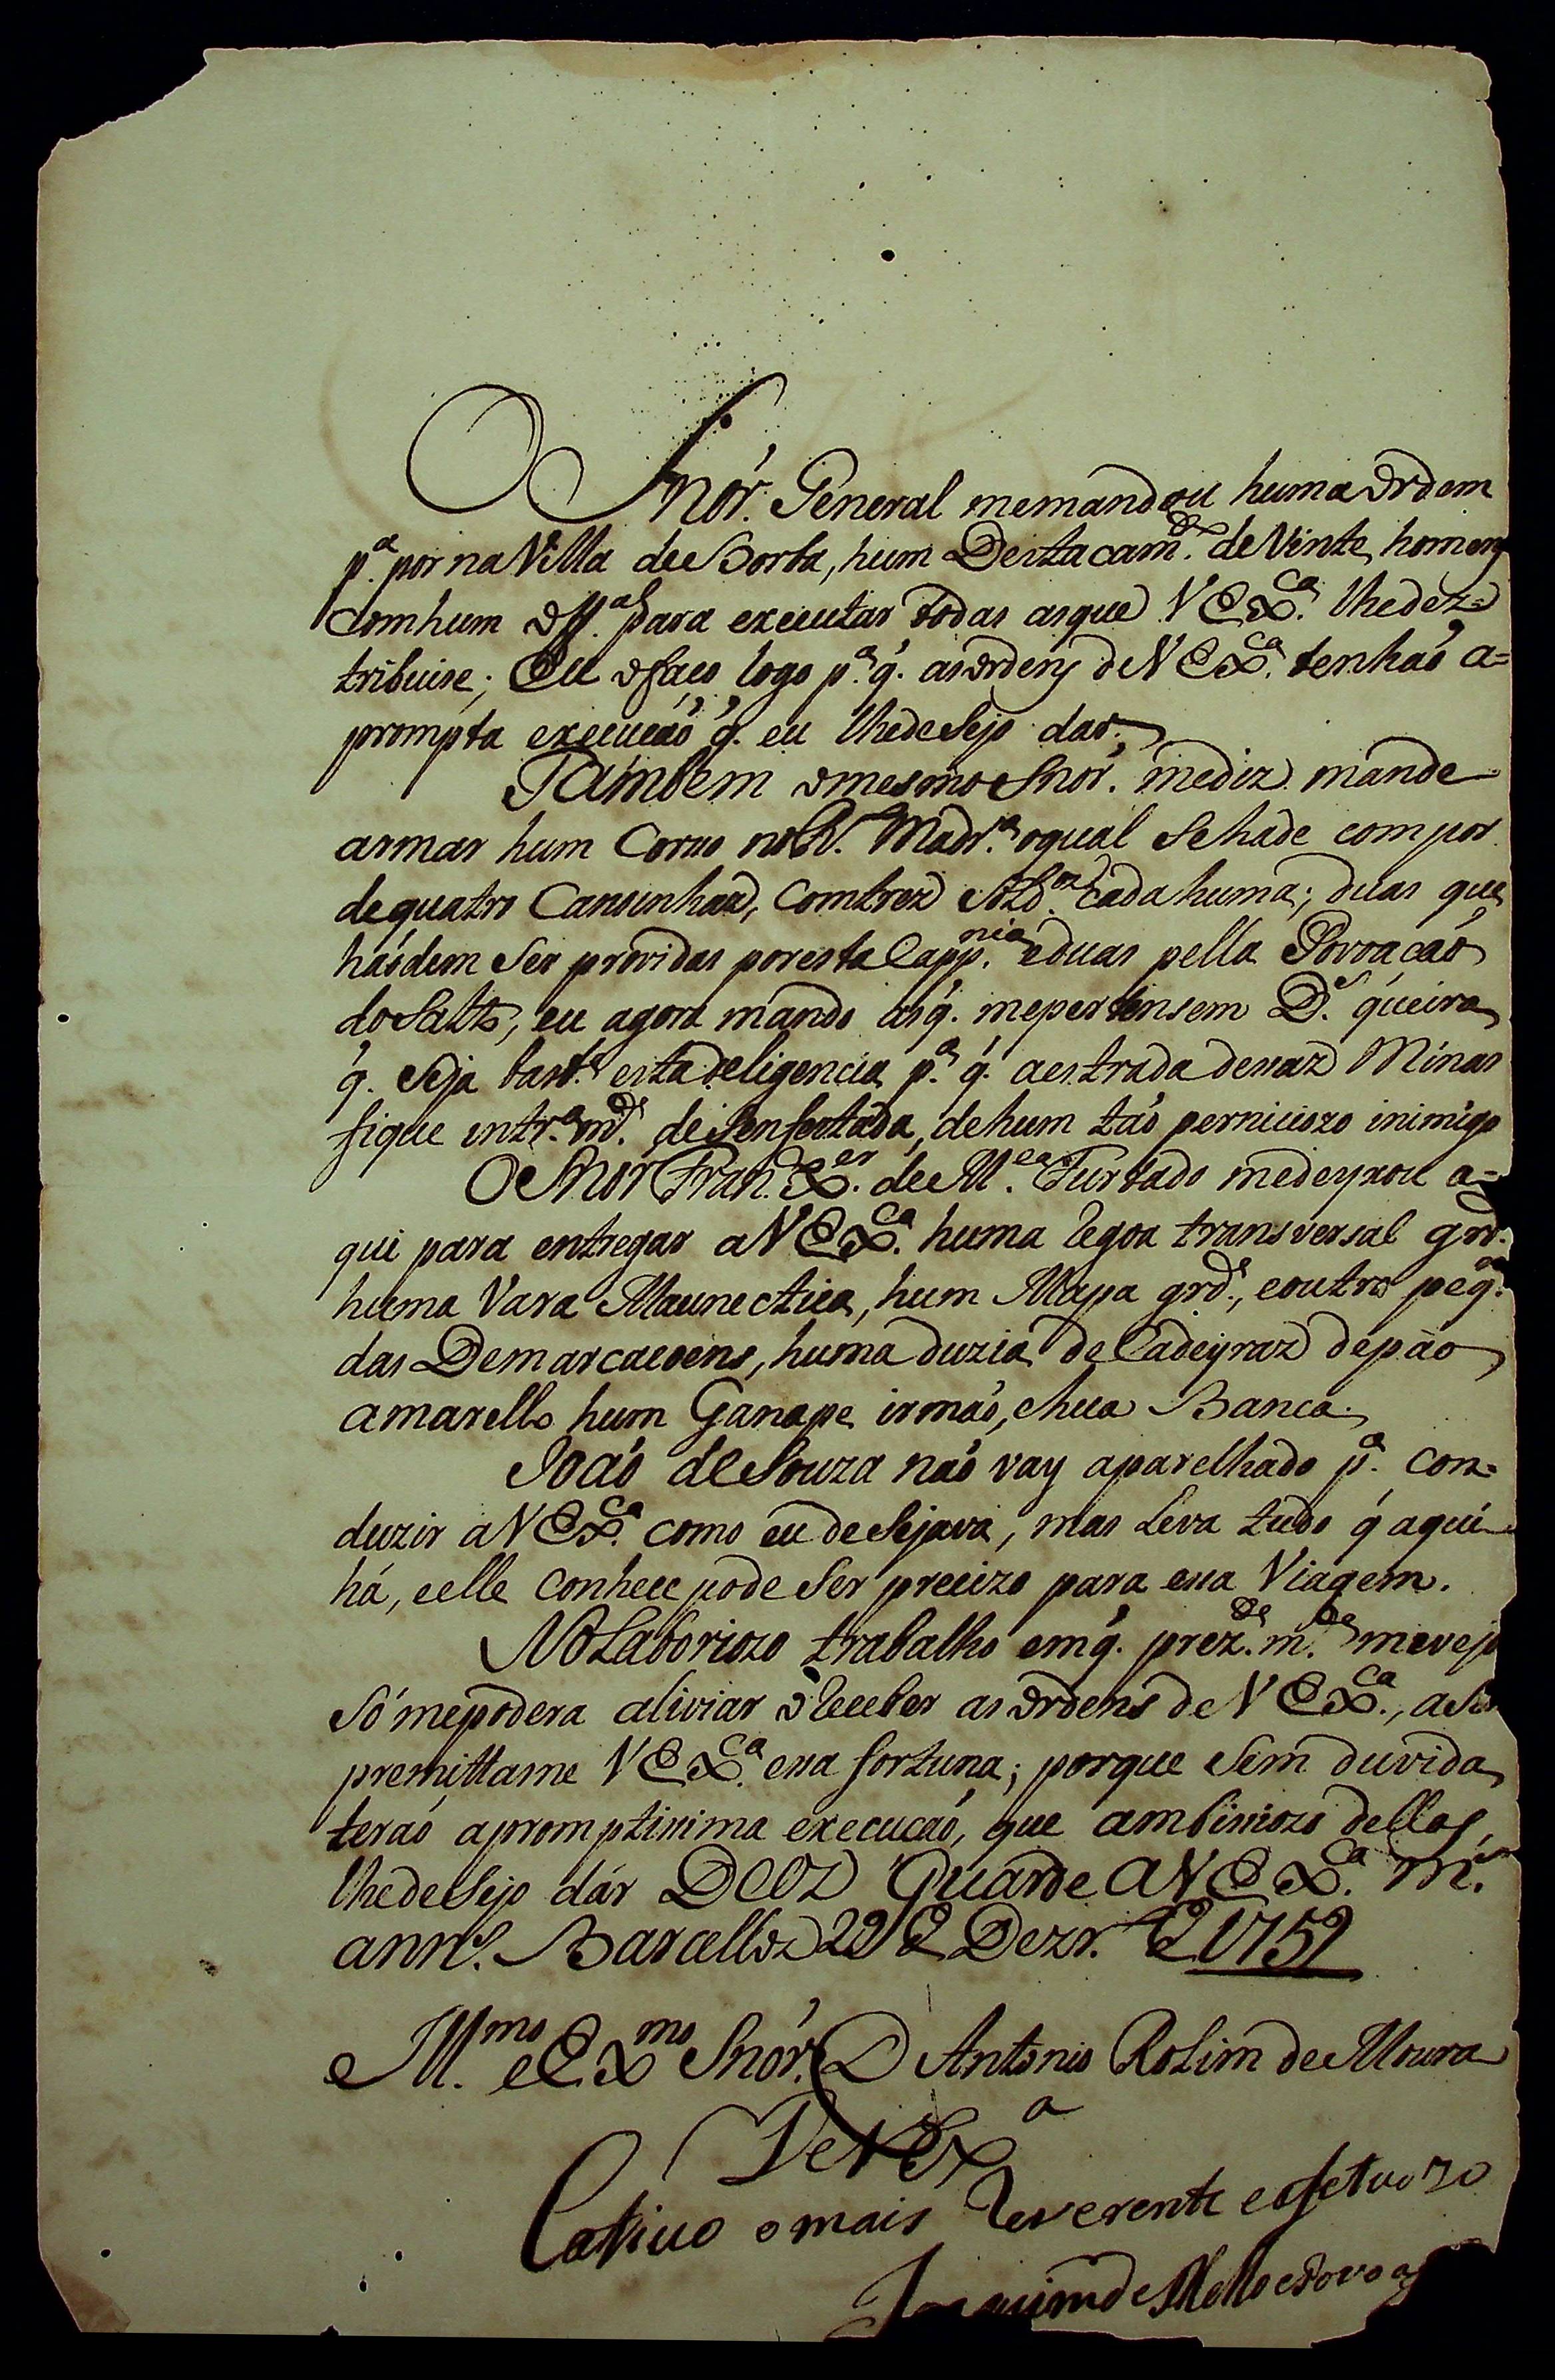 O Snór. General memandou huma ordem
p.ª por na Villa de Borba, hum Destacam.to de Vinte homens
com hum off.al para executar todas as que V Ex.ca lhe dez=
tribuise; Eu o faço logo p.ª q. as ordens de V Ex.ca tenhaó a=
prompta execuçaó q. eu lhe desejo dar.
Tambem o mesmo Snór. mediz mande
armar hum Corso no R. Madr.ª o qual Sehade compor
de quatro Canoinhaz, com trez Sold.oz cada huma; duas que
haódem Ser providas por esta Capp.nia e duas pella Povoaçaó
do Salto, eu agora mando as q. mepertensem D.s queira
q. Seja bast.e esta deligencia p.ª q. a estrada desaz Minas
fique intr.ª m.te desenfestada, de hum taó perniciozo inimigo
O Snór Fran. X.er de M.ca Furtado medeyxou a=
qui para entregar a V Ex.ca huma Regoa transversal grd.
huma Vara Maunectica, hum Mapa grd.e, e outro peq.
das Demarcaçoens, huma duzia de Cadeyraz de páo
amarello hum Ganape irmaó, e hua Banca.
Joaó de Souza naó vay aparelhado p.ª con=
duzir a V Ex.ca como eu desejava, mas Leva tudo q́ aqui
há, e elle conhece pode Ser precizo para essa Viagem.
No Laboriozo trabalho em q. prez.te m.te mevejo
Só mepodera aliviar o Receber as ordens de V Ex.ca, a Sim
premittame V Ex.ca essa fortuna; porque Sem duvida
teraó a promptissima execuçaó, que ambiciozo dellas,
lhe desejo dár Deoz Guarde a V Ex.ca m.s
ann.s Barcelloz 29 de Dezr.º de 1759
Ill.mo e Ex.mo Snór. D Antonio Rolim de Moura
De V Ex.ª
Cativo o mais Reverente e afetuozo
Joaquim de Mello e Povoas